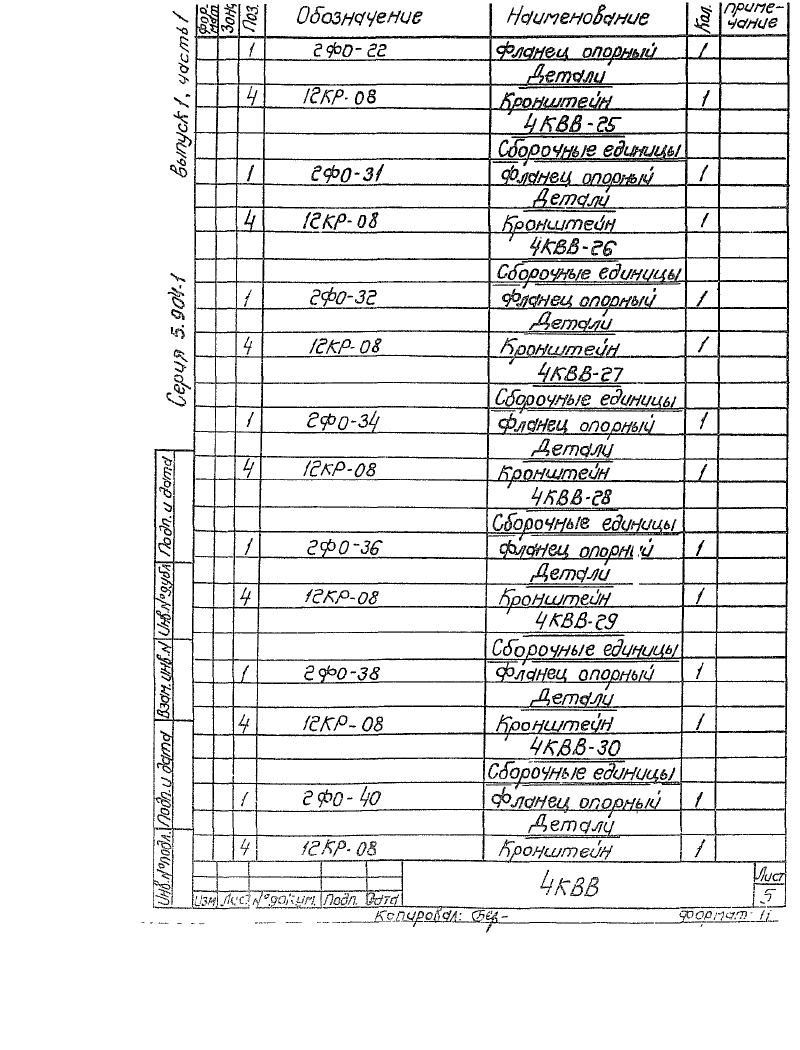 Выпуск 1, часть 1
Серия 5.904-1
Фор-мат Зона Поз. Обозначение Наименование Кол. Приме-чание
1 2ФО-22 Фланец опорный 1
Детали
4 12КР-08 Кронштейн 1
4КВВ-25
Сборочные единицы
1 2ФО-31 Фланец опорный 1
Детали
4 12КР-08 Кронштейн 1
4КВВ-26
Сборочные единицы
1 2ФО-32 Фланец опорный 1
Детали
4 12КР-08 Кронштейн 1
4КВВ-27
Сборочные единицы
1 2ФО-34 Фланец опорный 1
Детали
4 12КР-08 Кронштейн 1
4КВВ-28
Сборочные единицы
1 2ФО-36 Фланец опорный 1
Детали
4 12КР-08 Кронштейн 1
4КВВ-29
Сборочные единицы
1 2ФО-38 Фланец опорный 1
Детали
4 12КР-08 Кронштейн 1
4КВВ-30
Сборочные единицы
1 2ФО-40 Фланец опорный 1
Детали
4 12КР-08 Кронштейн 1
Инв.№подл. Подп. и дата Взам.инв.№ Инв.№дубл. Подп. и дата
Изм Лист №докум. Подп. Дата
4КВВ
Лист
5
Копировал: формат: 11